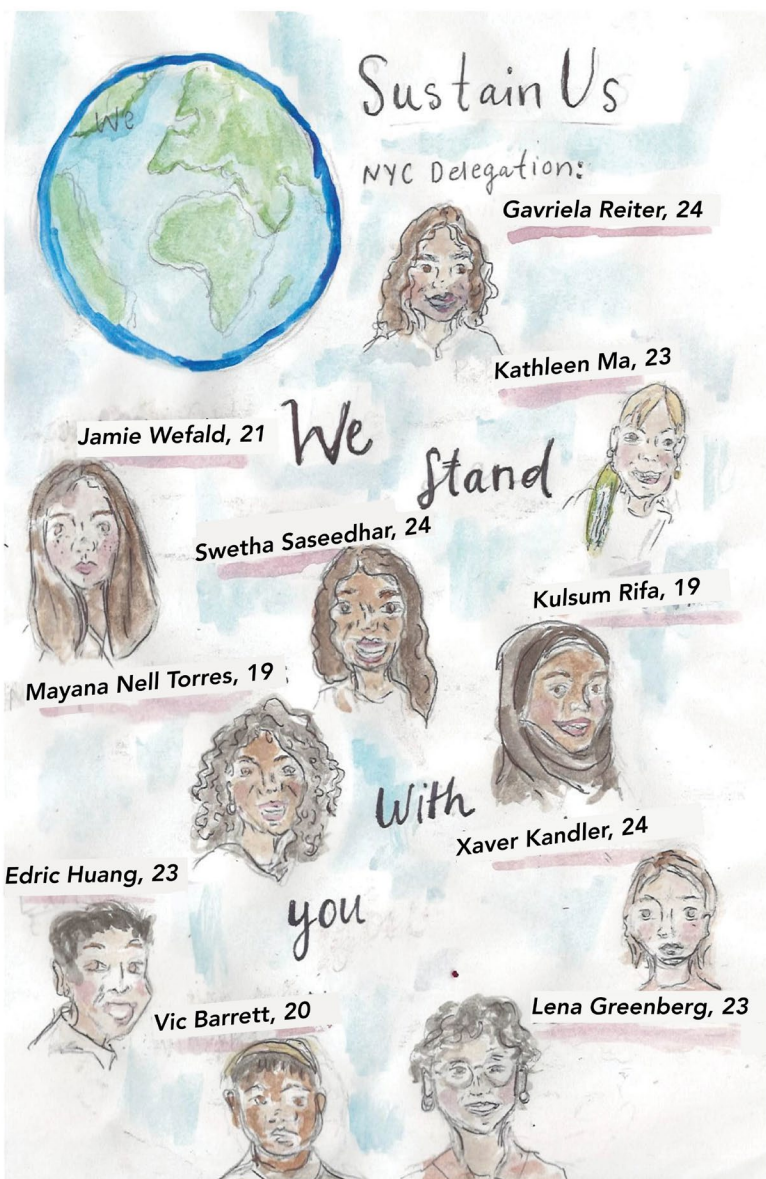 We
Sustain Us
NYC Delegation:
Gavriela Reiter, 24
Kathleen Ma, 23
Jamie Wefald, 21
We
Stand
Swetha Saseedhar, 24
Kulsum Rifa, 19
Mayana Nell Torres, 19
With
Xaver Kandler, 24
Edric Huang, 23
you
Vic Barrett, 20
Lena Greenberg, 23